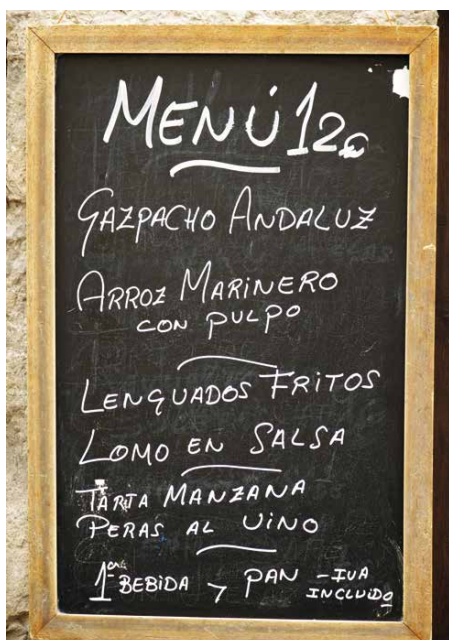 MENÚ 12€
GAZPACHO ANDALUZ
ARROZ MARINERO
CON PULPO
LENGUADOS FRITOS
LOMO EN SALSA
TARTA MANZANA
PERAS AL VINO
1ª BEBIDA y PAN - IVA
INCLUIDO